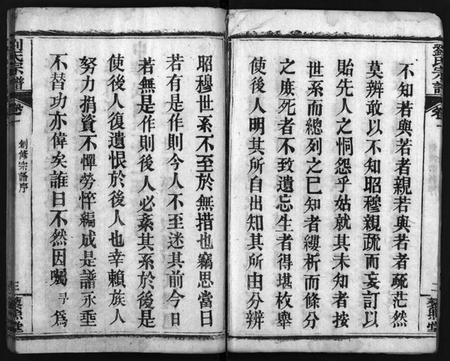 劉氏宗譜
卷一
不知若與若者親若與若者疏茫然
莫辨敢以不知昭穆親疏而妄訂以
貽先人之恫怨乎姑就其未知者按
世系而總列之已知者縷析而條分
之庶死者不致遺忘生者得堪枚舉
使後人明其所自出知其所由分辨
二
藜照堂
昭穆世系不至於無措也竊思當日
若有是作則今人不至迷其前今日
若無是作則後人必紊其系於後是
使後人復遺恨於後人也幸賴族人
努力捐資不憚勞瘁編成是譜永垂
不替功亦偉矣誰曰不然因囑予為
劉氏宗譜
卷一
創修宗譜序
三
藜照堂